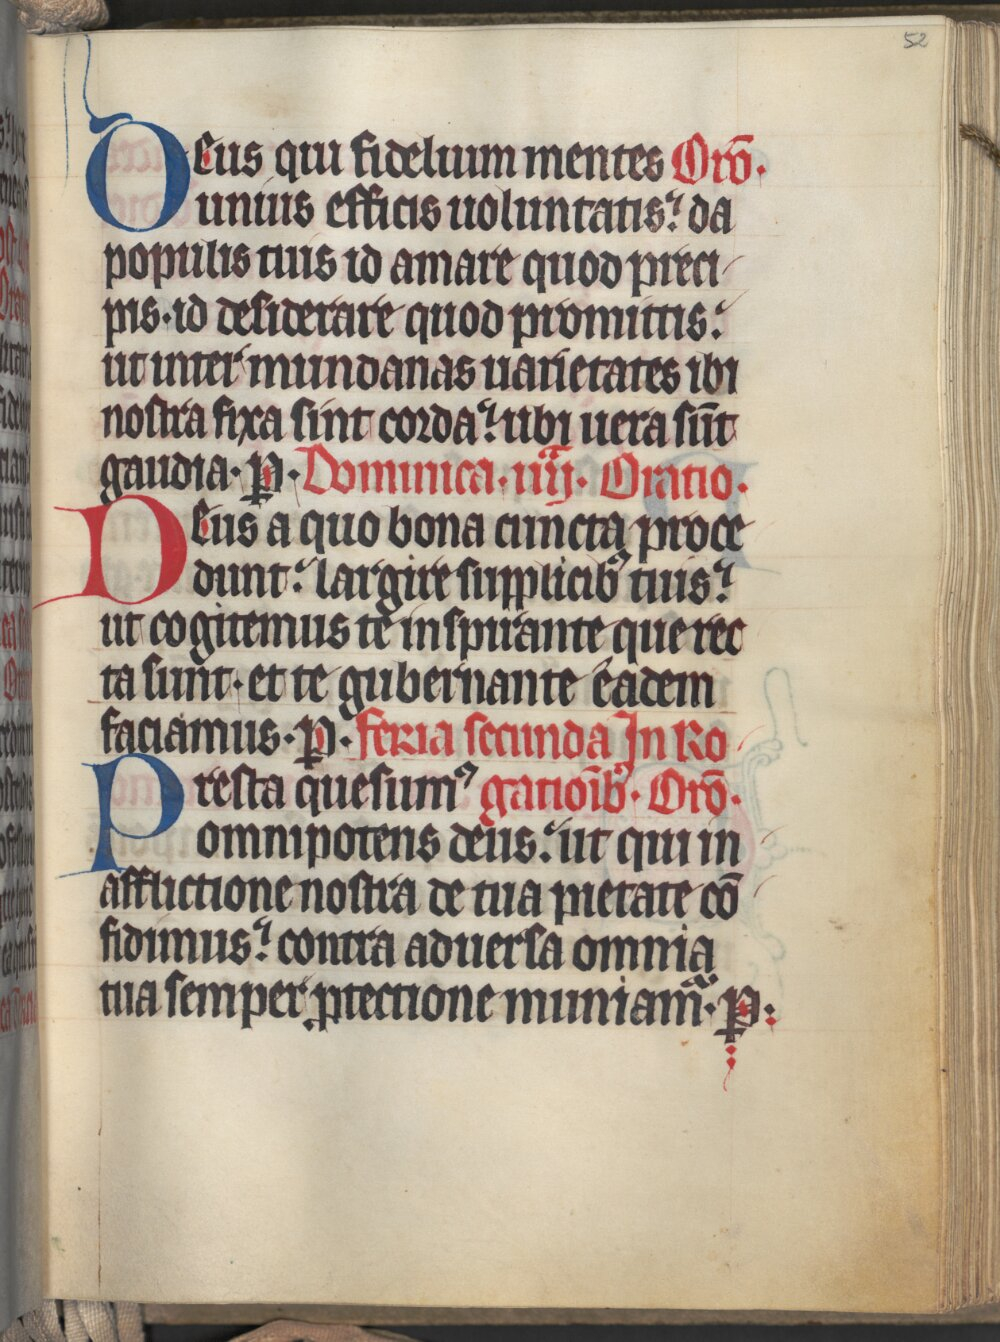 52
Deus qui fidelium mentes Orō.
unius efficis uoluntatis? da
populis tuis id amare quod preci
pis. id desiderare quod promittis?
ut inter mundanas uarietates ibi
nostra fixa sint corda? ubi uera sūt
gaudia. p. Dominica. iiij. Oratio.
Deus a quo bona cuncta proce
dunt? largire supplicibꝰ tuis?
ut cogitemus te inspirante que rec
ta sunt. et te gubernante eadem
faciamus. p. feria secunda In Ro
Presta quesumꝰ gationībꝰ. Orō.
omnipotens deus? ut qui in
afflictione nostra de tua pietate cō
fidimus? contra aduersa omnia
tua semper ꝓtectione muniam̄. p: